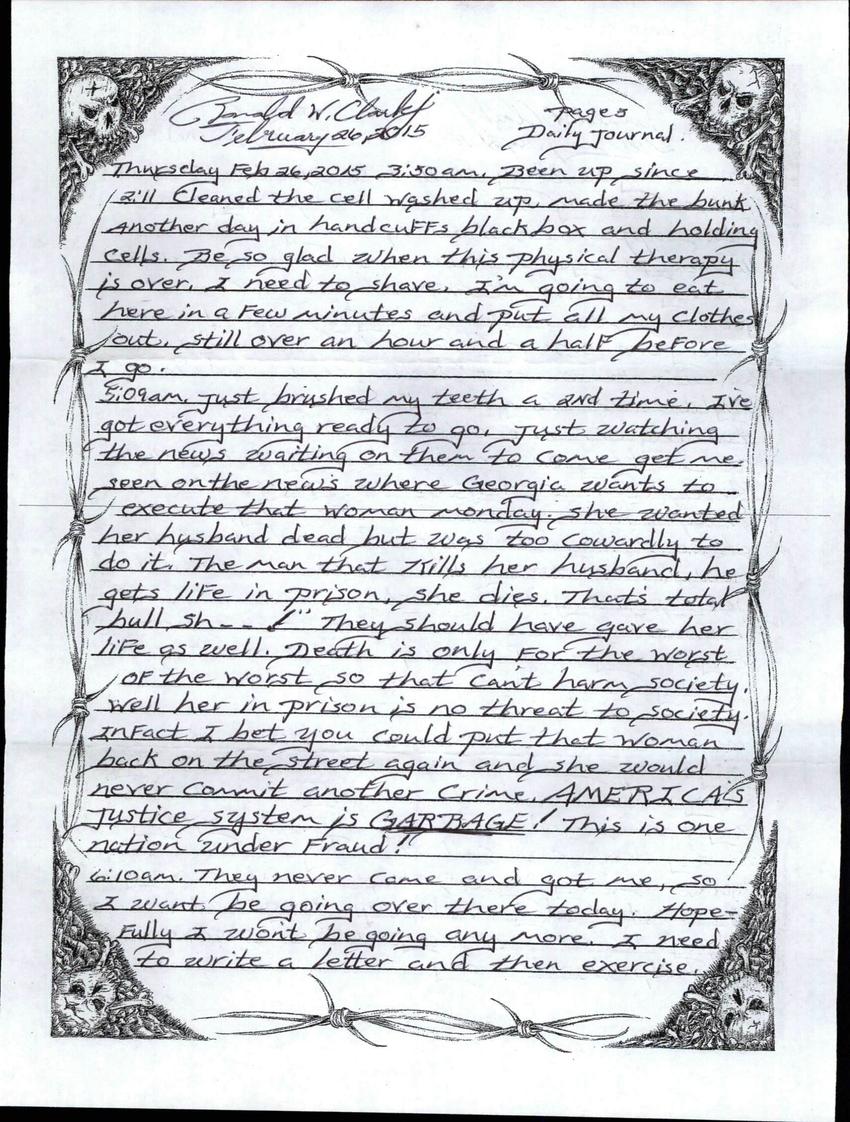 Ronald W. Clark Jr
Pages
February 26, 2015
Daily Journal.
Thursday Feb 26, 2015 3:50am. Been up since
2:11 Cleaned the cell washed up, made the bunk.
Another day in handcuffs blackbox and holding
cells. Be so glad when this physical therapy
is over. I need to shave. I'm going to eat
here in a few minutes and put all my clothes
out, still over an hour and a half before
I go.
5:09am. Just brushed my teeth a 2nd time. I've
got everything ready to go. Just watching
the news waiting on them to come get me.
seen on the news where Georgia wants to
execute that woman monday. She wanted
her husband dead but was too cowardly to
do it. The man that kills her husband, he
gets life in prison, she dies. That's total
bull sh--!" They should have gave her
life as well. Death is only for the worst
of the worst so that can't harm society.
Well her in prison is no threat to society.
Infact I bet you could put that woman
back on the street again and she would
never commit another crime. AMERICA'S
Justice system is GARBAGE! This is one
nation under Fraud!"
6:10am. They never came and got me, so
I want be going over there today. Hope-
fully I won't be going any more. I need
to write a letter and then exercise.